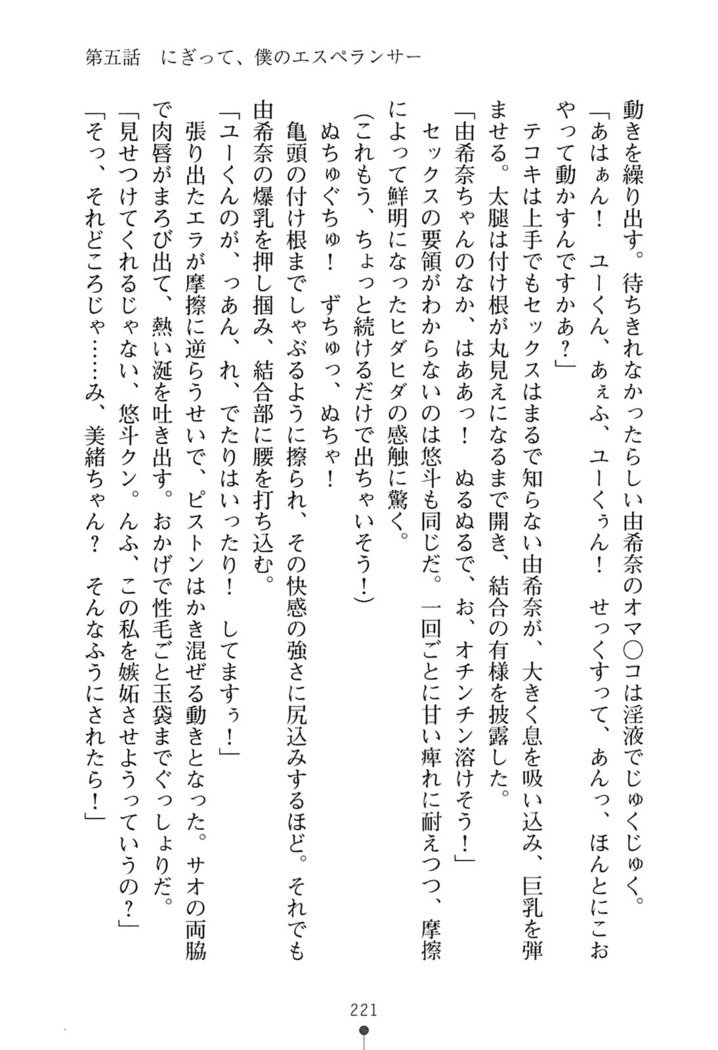 第五話　にぎって、僕のエスペランサー
動きを繰り出す。待ちきれなかったらしい由希奈のオマ〇コは淫液でじゅくじゅく。
「あはぁん！　ユーくん、あぇふ、ユーくぅん！　せっくすって、あんっ、ほんとにこお
やって動かすんですかあ？」
　テコキは上手でもセックスはまるで知らない由希奈が、大きく息を吸い込み、巨乳を弾
ませる。太腿は付け根が丸見えになるまで開き、結合の有様を披露した。
「由希奈ちゃんのなか、はああっ！　ぬるぬるで、お、オチンチン溶けそう！」
　セックスの要領がわからないのは悠斗も同じだ。一回ごとに甘い痺れに耐えつつ、摩擦
によって鮮明になったヒダヒダの感触に驚く。
（これもう、ちょっと続けるだけで出ちゃいそう！）
　ぬちゅぐちゅ！　ずちゅっ、ぬちゃ！
　亀頭の付け根までしゃぶるように擦られ、その快感の強さに尻込みするほど。それでも
由希奈の爆乳を押し掴み、結合部に腰を打ち込む。
「ユーくんのが、っあん、れ、でたりはいったり！　してますぅ！」
　張り出たエラが摩擦に逆らうせいで、ピストンはかき混ぜる動きとなった。サオの両脇
で肉唇がまろび出て、熱い涎を吐き出す。おかげで性毛ごと玉袋までぐっしょりだ。
「見せつけてくれるじゃない、悠斗クン。んふ、この私を嫉妬させようっていうの？」
「そっ、それどころじゃ……み、美緒ちゃん？　そんなふうにされたら！」
221